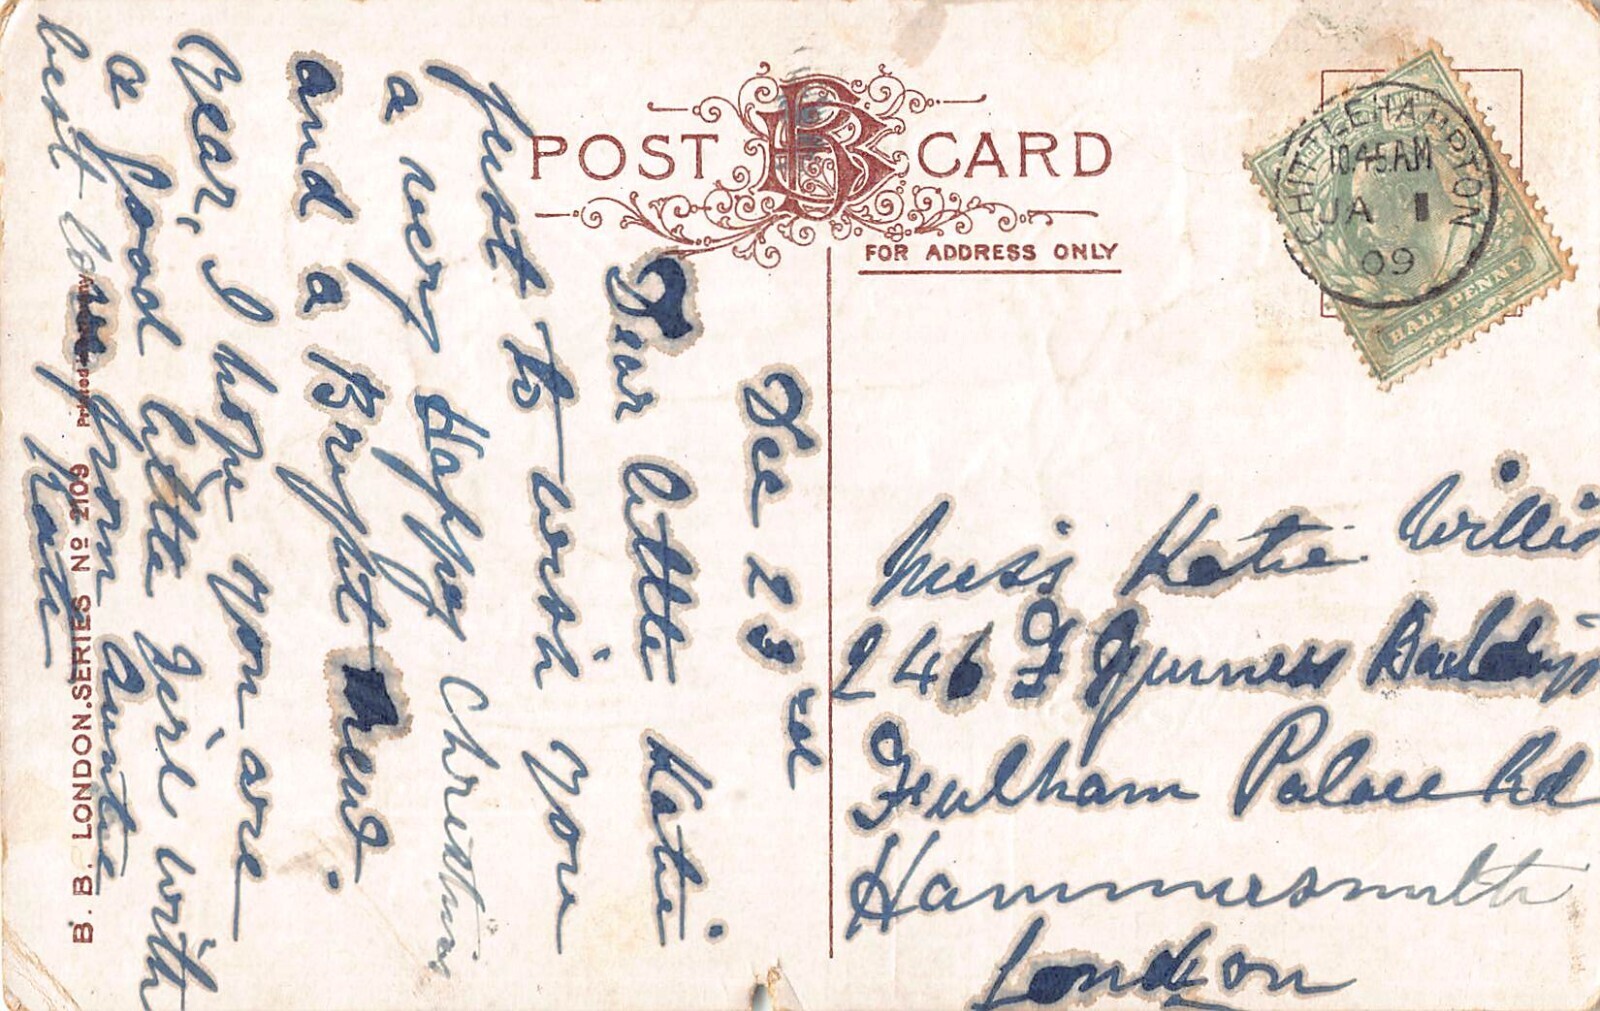 POST CARD
FOR ADDRESS ONLY
CHITTLEHAMPTON
10.45.AM
JA 1
09
HALF PENNY
Dec 23rd
Dear little Katie
Just to wish you
a very Happy Christmas
and a Bright new
Year, I hope you are
a good little girl with
best love from Auntie
Miss Katie Willis
246 F Guiness Buildings
Fulham Palace Rd
Hammersmith
London
B. B. LONDON. SERIES No 2109